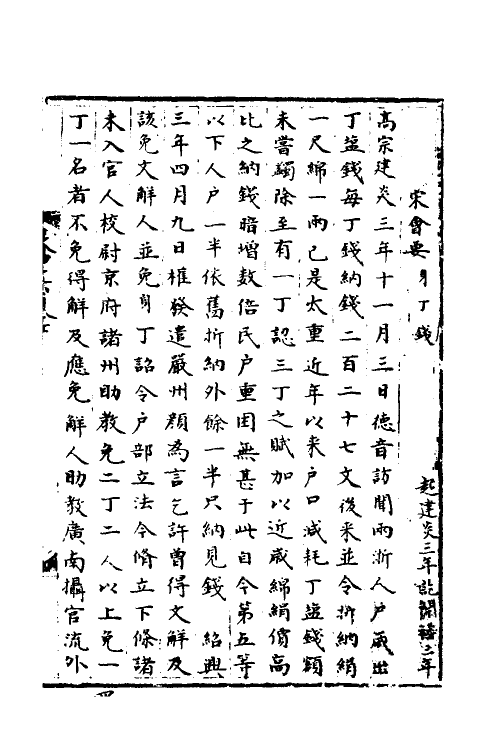 宋會要 身丁錢 起建炎三年訖開禧二年
高宗建炎三年十一月三日德音訪聞兩浙人戶歲出
丁盐錢每丁錢納錢二百二十七文後來並令折納絹
一尺綿一兩已是太重近年以來户口減耗丁盐錢額
未嘗蠲除至有一丁認三丁之賦加以近歲綿絹價高
比之納錢暗增数倍民户重困無甚于此自今第五等
以下人户一半依舊折納外餘一半只納見錢 紹興
三年四月九日權發遣嚴州顔為言乞許曽得文解及
該免文解人並免身丁詔令户部立法今脩立下條諸
未入官人校尉京府諸州助教免二丁二人以上免一
丁一名者不免得解及應免解人助教廣南攝官流外